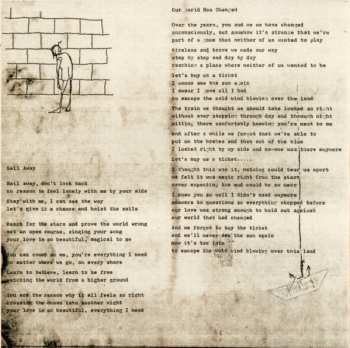 Sail Away
Sail away, don't look back
no reason to feel lonely with me by your side
Stay with me, I can see the way
let's give it a chance and hoist the sails
Reach for the stars and prove the world wrong
set an open course, singing your song
your love is so beautiful, magical to me
You can count on me, you're everything I need
no matter where we go, on every shore
Learn to believe, learn to be free
watching the world from a higher ground
You are the reason why it all feels so right
crossing the ocean into another night
your love is so beautiful, everything I need
Our World Has Changed
Over the years, you and me we have changed
unconsciously, but somehow it's strange that we're
part of a game that neither of us wanted to play
Aimless and brave we made our way
step by step and day by day
reaching a place where neither of us wanted to be
Let's buy us a ticket
I wanna see the sun again
I swear I gave all I had
to escape the cold wind blowing over the land
The train we thought we should take looked so right
without ever stopping through day and through night
sitting there comfortably beside you're next to me
And after a while we forgot that we're able to
put on the brakes and then out of the blue
I looked right by my side and no-one was there anymore
Let's buy us a ticket.....
I thought this was it, nothing could tear us apart
we felt it was magic right from the start
never expecting how sad could be no more
I know you so well I didn't need anymore
answers to questions so everything stopped before
our love was strong enough to hold out against
our world that had changed
And we forgot to buy the ticket
and we'll never see the sun again
now it's too late
to escape the cold wind blowing over this land